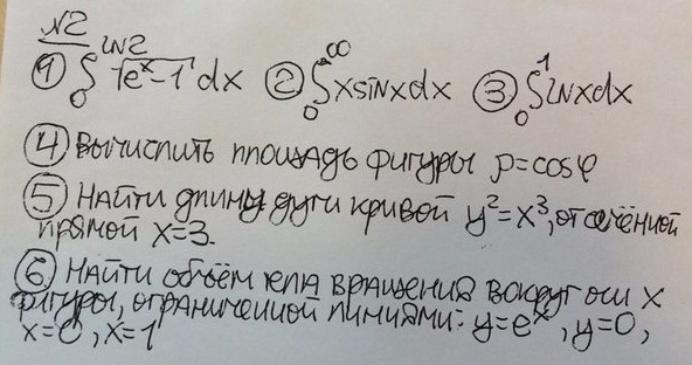 №2
① ∫₀^{ln2} √(eˣ-1) dx ② ∫₀^∞ x sinx dx ③ ∫₀¹ lnx dx
④ Вычислить площадь фигуры ρ=cosφ
⑤ Найти длины дуги кривой y²=x³, отсечённой
прямой x=3.
⑥ Найти объём тела вращения вокруг оси x
фигуры, ограниченной линиями: y=eˣ, y=0,
x=0, x=1